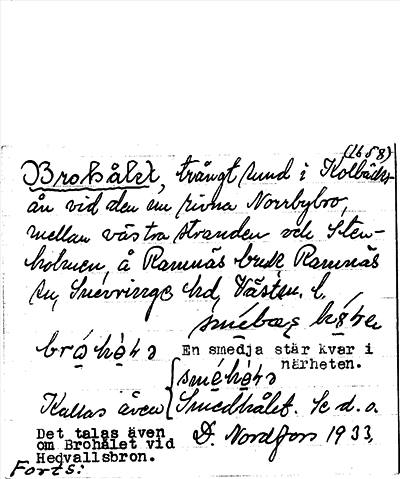 (1658)
Brohålet, trångt sund i Kolbäcks-
ån vid den nu rivna Norrbybro,
mellan västra stranden och Sten-
holmen, å Ramnäs bruk Ramnäs
sn, Snevringe hd, Västm. l.
En smedja står kvar i
närheten.
Kallas även Smedhålet. Se d. o.
Det talas även
om Brohålet vid
Hedvallsbron.
D. Nordfors 1933.
Forts: